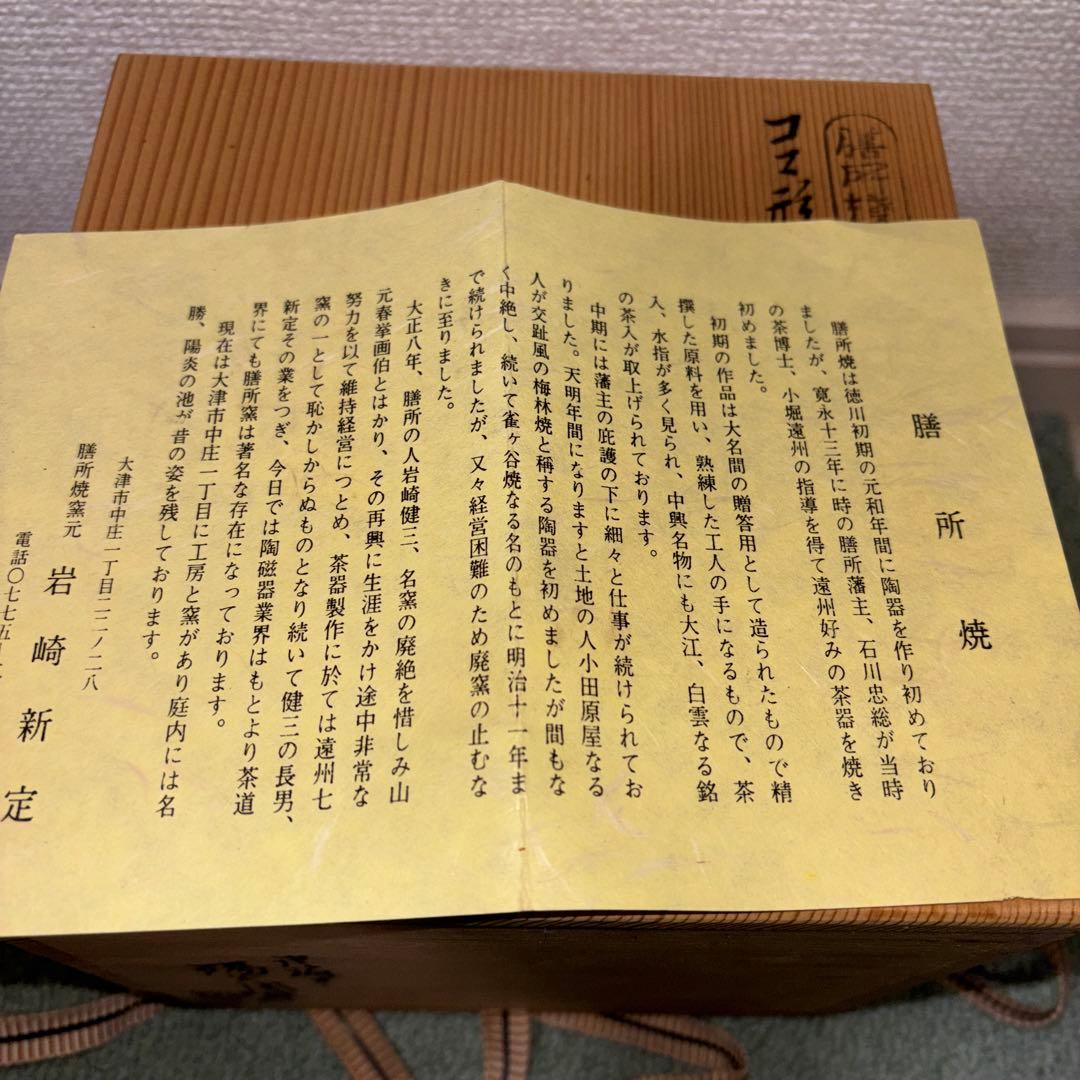 膳所焼
膳所焼は徳川初期の元和年間に陶器を作り初めており
ましたが、寛永十三年に時の膳所藩主、石川忠総が当時
の茶博士、小堀遠州の指導を得て遠州好みの茶器を焼き
初めました。
初期の作品は大名間の贈答用として造られたもので精
撰した原料を用い、熟練した工人の手になるもので、茶
入、水指が多く見られ、中興名物にも大江、白雲なる銘
の茶入が取上げられております。
中期には藩主の庇護の下に細々と仕事が続けられてお
りました。天明年間になりますと土地の人小田原屋なる
人が交趾風の梅林焼と稱する陶器を初めましたが間もな
く中絶し、続いて雀ヶ谷焼なる名のもとに明治十一年ま
で続けられましたが、又々経営困難のため廃窯の止むな
きに至りました。
大正八年、膳所の人岩崎健三、名窯の廃絶を惜しみ山
元春挙画伯とはかり、その再興に生涯をかけ途中非常な
努力を以て維持経営につとめ、茶器製作に於ては遠州七
窯の一として恥かしからぬものとなり続いて健三の長男、
新定その業をつぎ、今日では陶磁器業界はもとより茶道
界にても膳所窯は著名な存在になっております。
現在は大津市中庄一丁目に工房と窯があり庭内には名
勝、陽炎の池が昔の姿を残しております。
大津市中庄一丁目二二ノ二八
膳所焼窯元
岩崎新定
電話〇七七五
コマ形